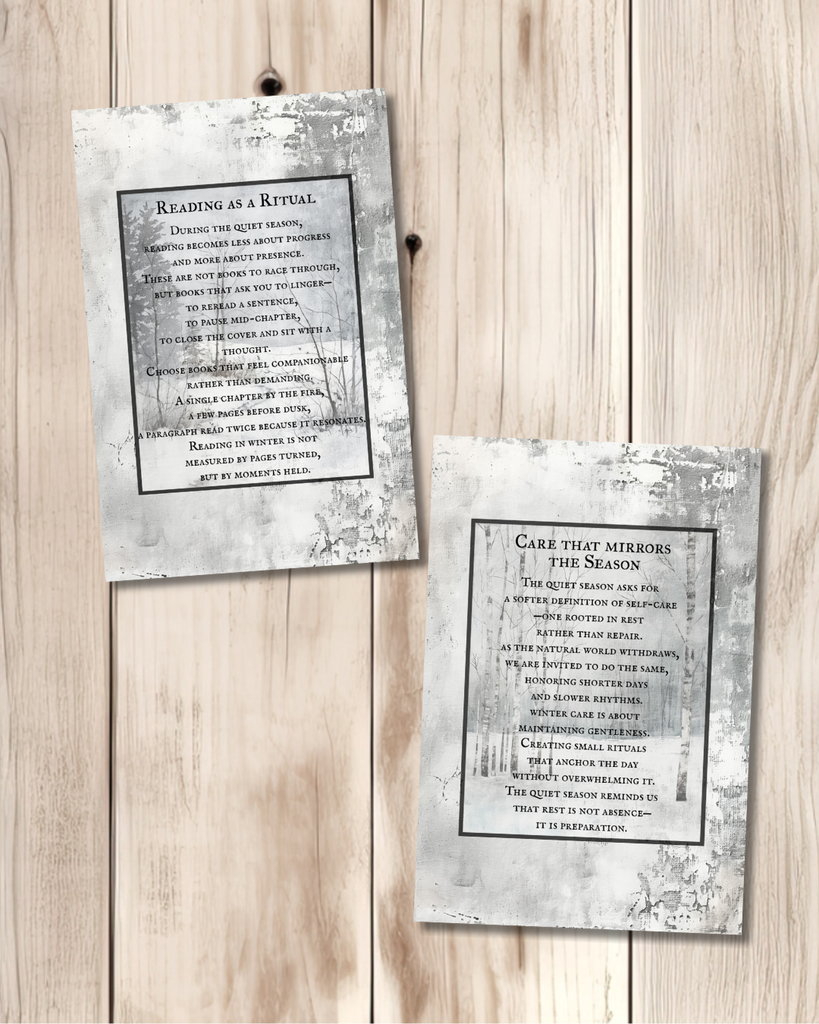 Reading as a Ritual
During the quiet season,
reading becomes less about progress
and more about presence.
These are not books to race through,
but books that ask you to linger—
to reread a sentence,
to pause mid-chapter,
to close the cover and sit with a
thought.
Choose books that feel companionable
rather than demanding.
A single chapter by the fire,
a few pages before dusk,
a paragraph read twice because it resonates.
Reading in winter is not
measured by pages turned,
but by moments held.
Care that mirrors
the Season
The quiet season asks for
a softer definition of self-care
—one rooted in rest
rather than repair.
as the natural world withdraws,
we are invited to do the same,
honoring shorter days
and slower rhythms.
winter care is about
maintaining gentleness.
Creating small rituals
that anchor the day
without overwhelming it.
The quiet season reminds us
that rest is not absence—
it is preparation.